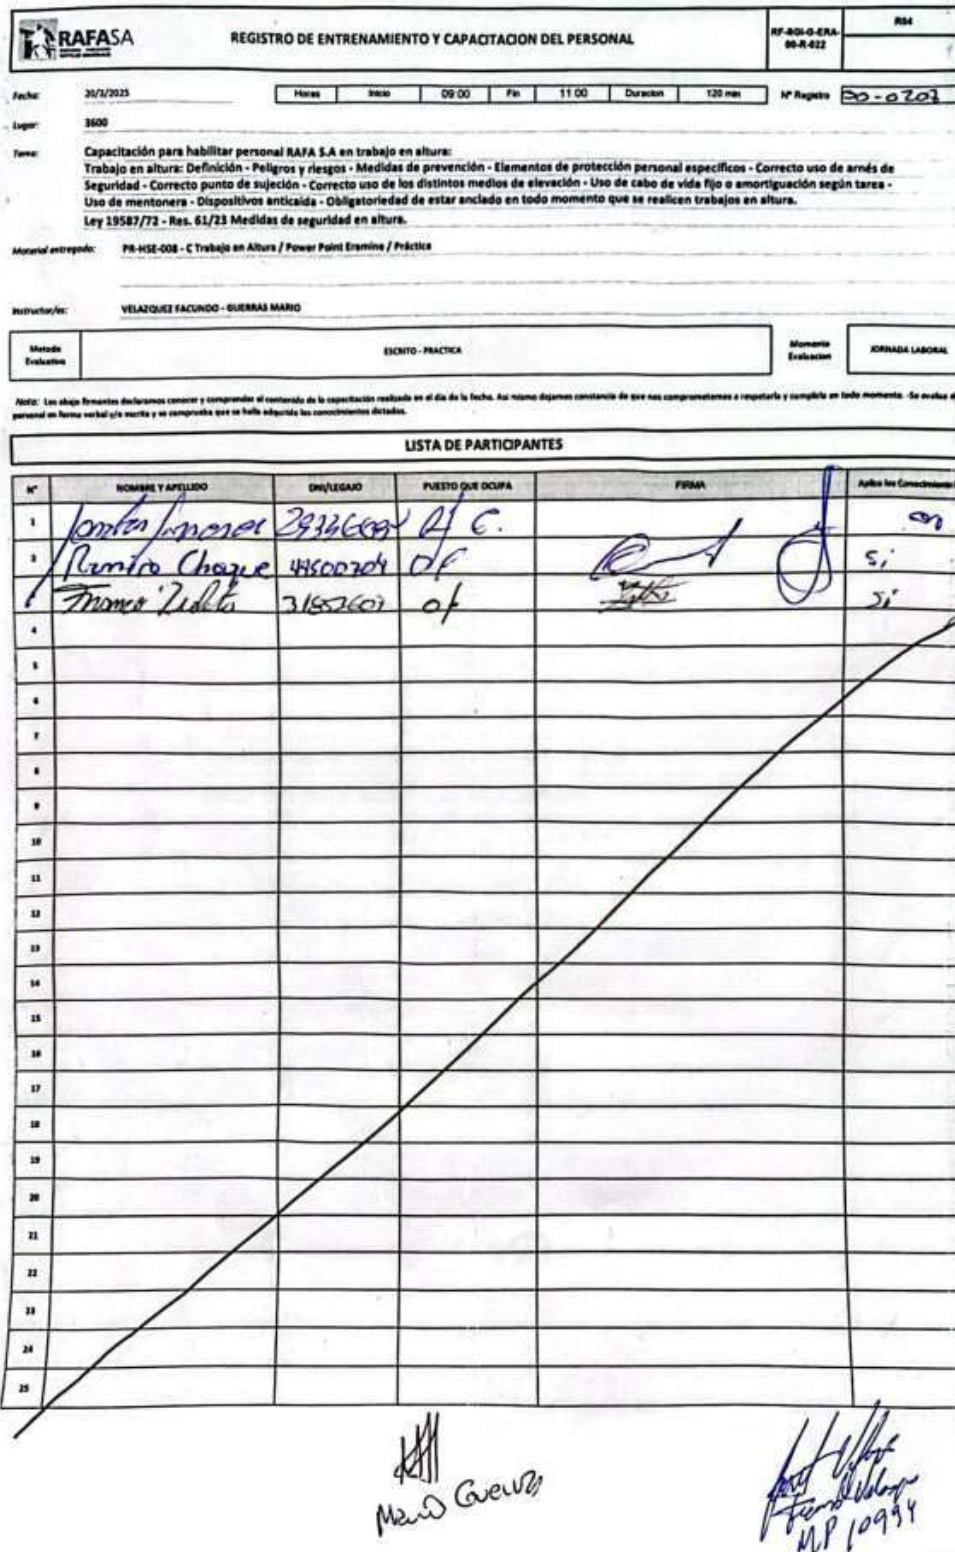 RAFASA
REGISTRO DE ENTRENAMIENTO Y CAPACITACION DEL PERSONAL
RF-AGI-G-ERA-00-R-022
R04
Fecha: 20/3/2025
Horas Inicio 09:00 Fin 11:00 Duracion 120 min
Nº Registro
Lugar: 3600
Tema: Capacitación para habilitar personal RAFA S.A en trabajo en altura:
Trabajo en altura: Definición - Peligros y riesgos - Medidas de prevención - Elementos de protección personal específicos - Correcto uso de arnés de
Seguridad - Correcto punto de sujeción - Correcto uso de los distintos medios de elevación - Uso de cabo de vida fijo o amortiguación según tarea -
Uso de mentonera - Dispositivos anticaida - Obligatoriedad de estar anclado en todo momento que se realicen trabajos en altura.
Ley 19587/72 - Res. 61/23 Medidas de seguridad en altura.
Material entregado: PR-HSE-008 - C Trabajo en Altura / Power Point Eramine / Práctica
Instructor/es: VELAZQUEZ FACUNDO - GUERRAS MARIO
Metodo Evaluativo
ESCRITO - PRACTICA
Momento Evaluacion
JORNADA LABORAL
Nota: Los abajo firmantes declaramos conocer y comprender el contenido de la capacitación realizada en el día de la fecha. Asi mismo dejamos constancia de que nos comprometemos a respetarla y cumplirla en todo momento. -Se evalua
personal en forma verbal y/o escrita y se comprueba que se halla adquirido los conocimientos dictados.
LISTA DE PARTICIPANTES
Nº NOMBRE Y APELLIDO DNI/LEGAJO PUESTO QUE OCUPA FIRMA Aplica los Conocimiento
1
2 Ramiro Choque 44500204 Of Si
Franco 31852607 of Si
4
5
6
7
8
9
10
11
12
13
14
15
16
17
18
19
20
21
22
23
24
25
Mario Guerras
M.P 10994